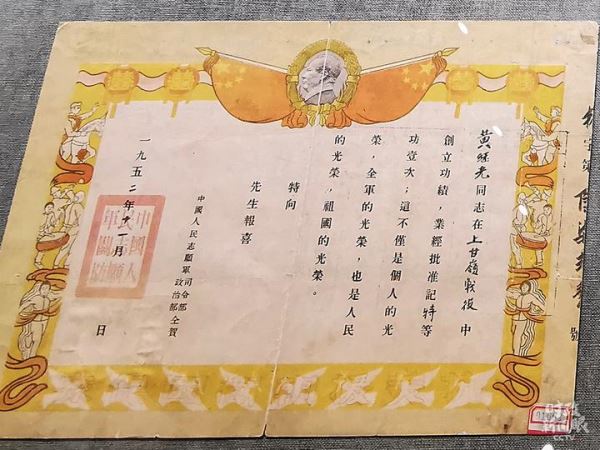 黃継光同志在上甘嶺戰役中
創立功績，業經批准記特等
功壹次；這不僅是個人的光
榮，全軍的光榮，也是人民
的光榮，祖國的光榮。
特向
先生報喜
中國人民志願軍司令部
政治部仝賀
一九五二年十一月 日
中國人
民志願
軍關防
號
CCTV